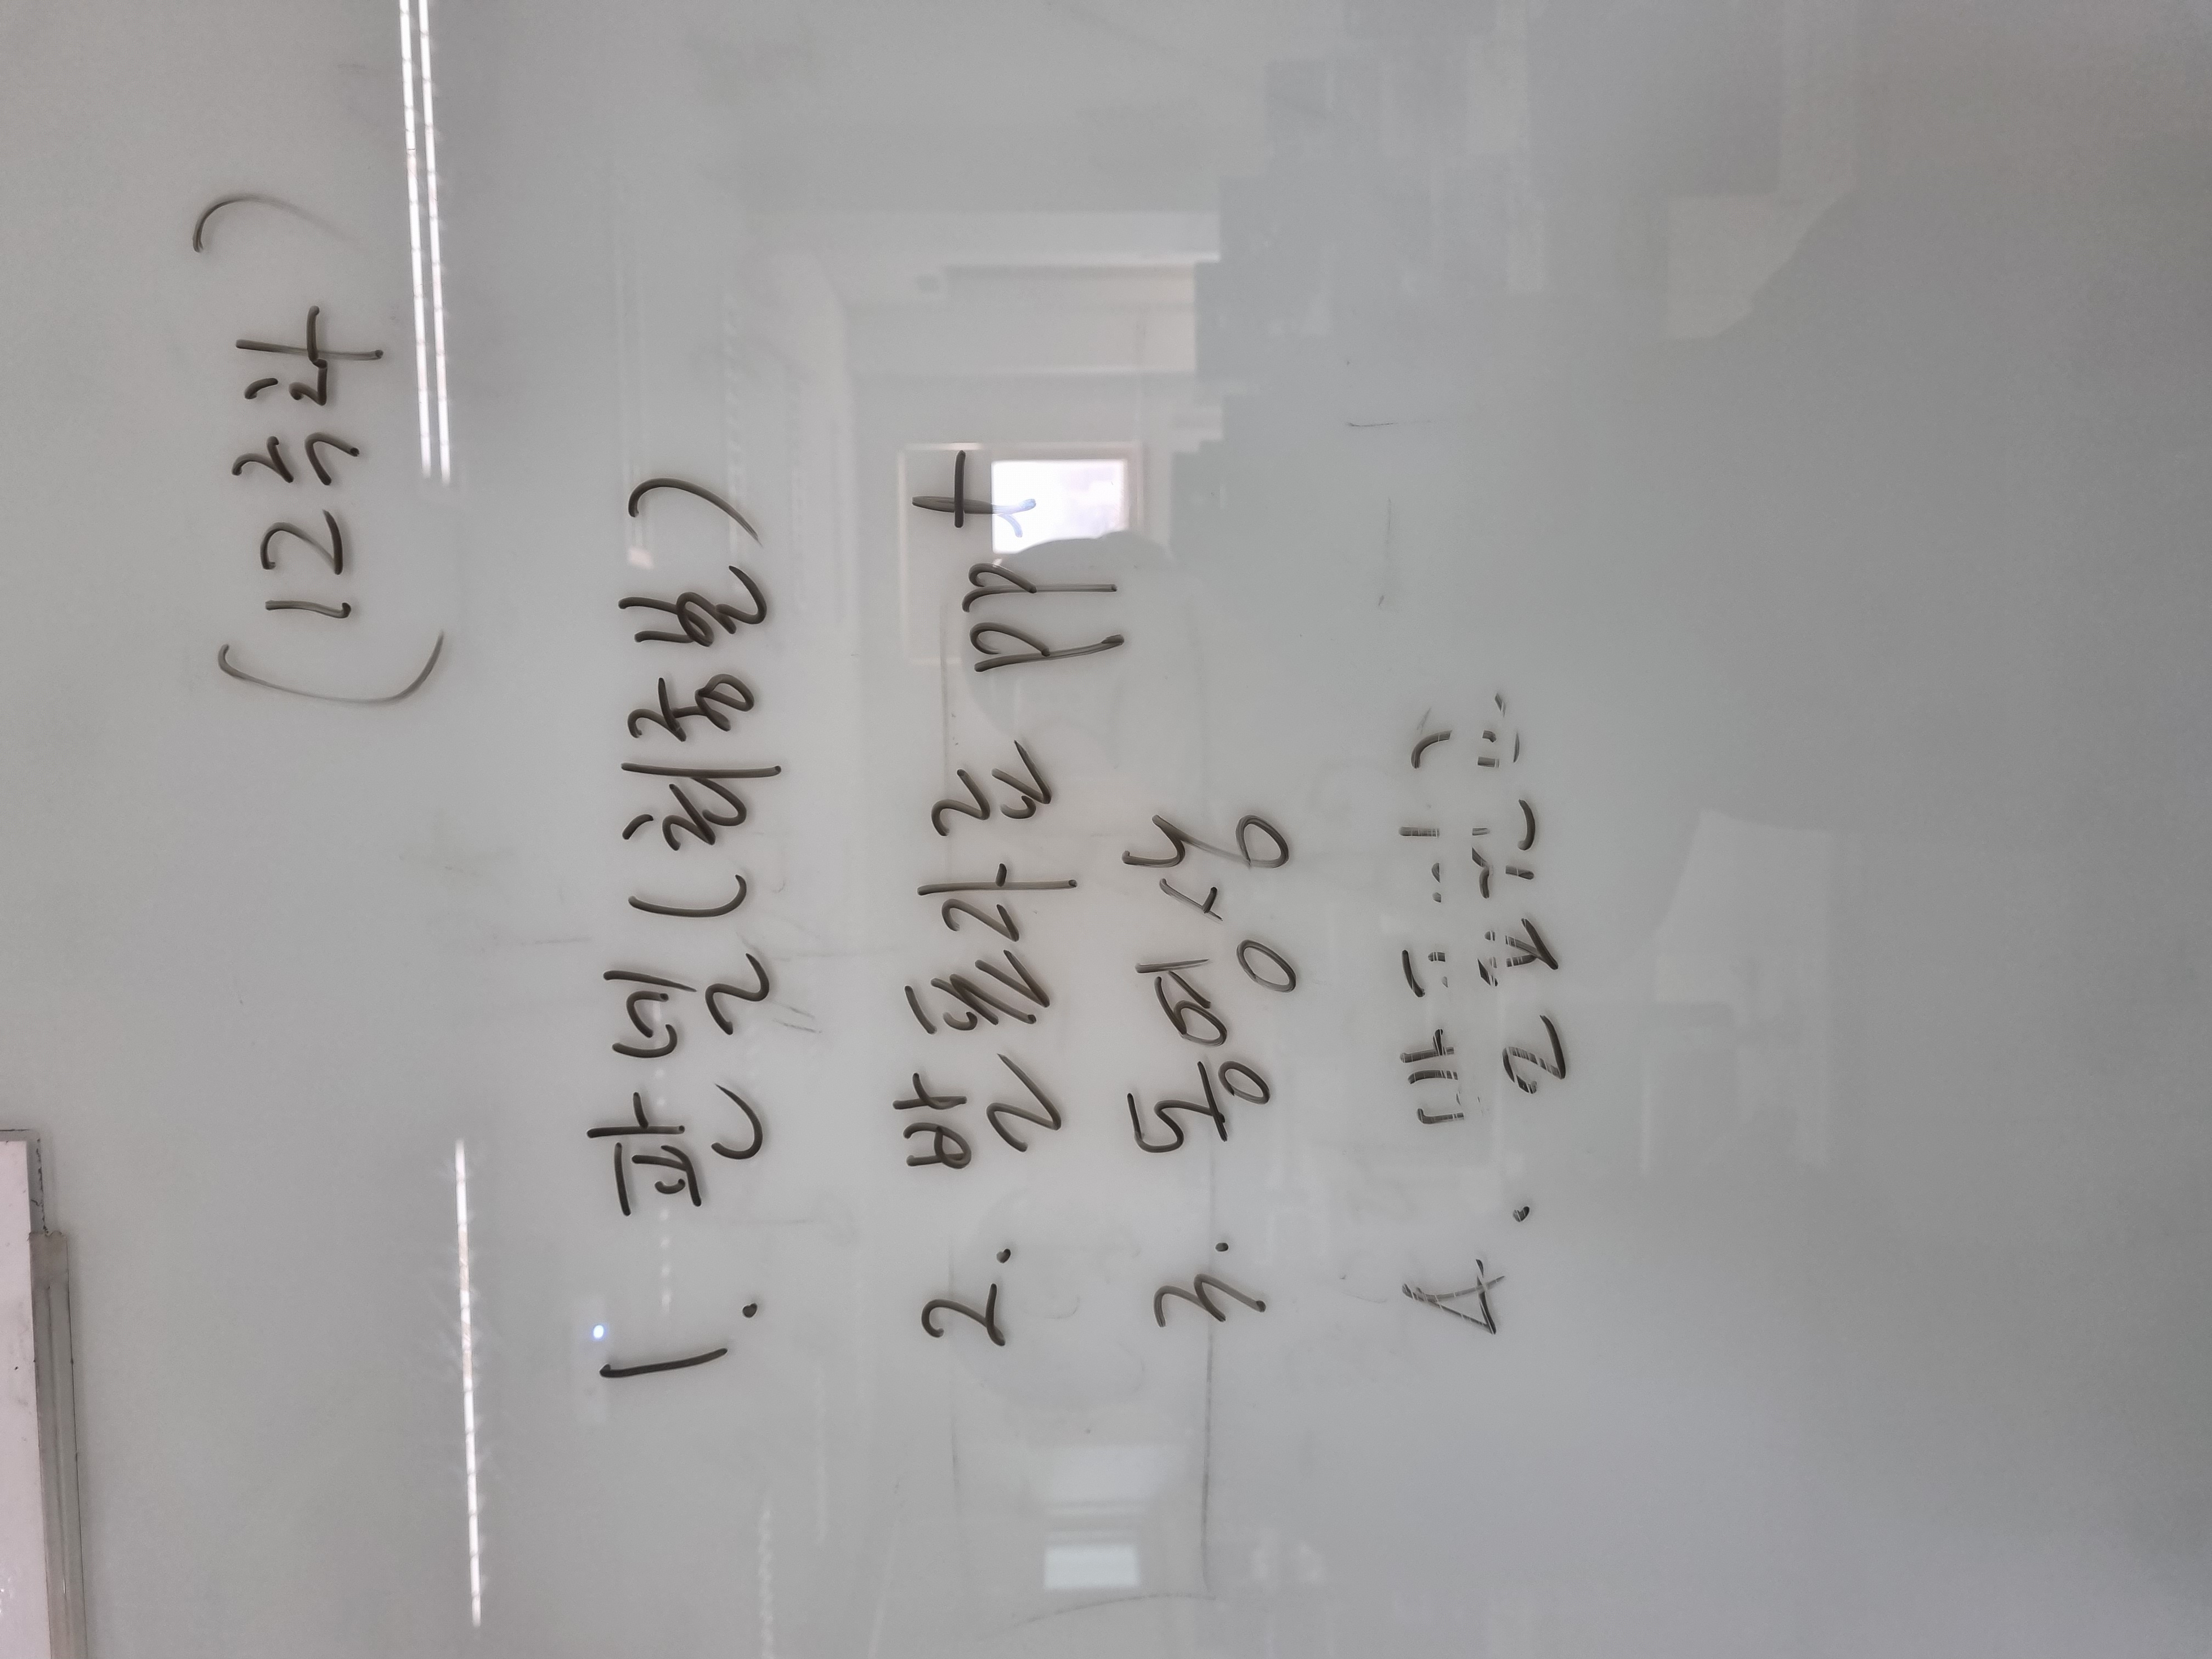 (12주차)
1. 판넬(최종본)
2. 발표자료 ppt
3. 동영상
4. 발표